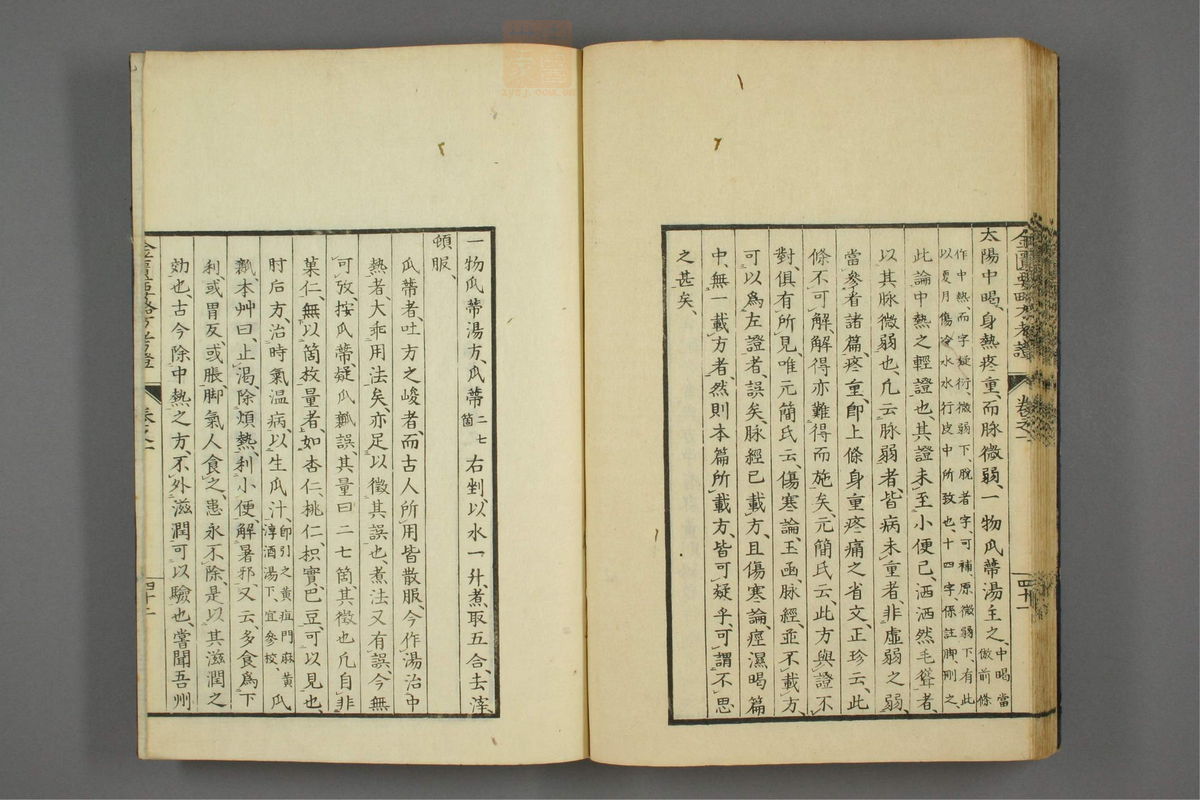 太陽中暍、身熱疼重、而脉微弱、一物瓜蔕湯主之、中暍當倣前條
作中熱、而字疑衍、微弱下、脫者字、可補、原微弱下、有此
以夏月傷冷水水行皮中所致也、十四字、係註脚、刪之、
此論中熱之輕證也、其證未至小便已、洒洒然毛聳者、
以其脉微弱也、凡云脉弱者、皆病未重者、非虛弱之弱、
當參考諸篇、疼重、卽上條身重疼痛之省文、正珍云、此
條不可解、解得亦難得而施矣、元簡氏云、此方與證不
對、俱有所見、唯元簡氏云、傷寒論、玉函、脉經、並不載方、
可以爲左證者、誤矣、脉經已載方、且傷寒論、痙濕暍篇
中、無一載方者、然則本篇所載方、皆可疑乎、可謂不思
之甚矣、
金匱要略方考證
卷之一
四十一
一物瓜蔕湯方、瓜蔕二七箇右剉、以水一升、煮取五合、去滓
頓服、
瓜蔕者、吐方之峻者、而古人所用皆散服、今作湯治中
熱者、大乖用法矣、亦足以徵其誤也、煮法又有誤、今無
可攷、按瓜蔕、疑瓜瓤誤、其量曰二七箇、其徵也、凡自非
菓仁、無以箇枚量者、如杏仁、桃仁、枳實、巴豆、可以見也、
肘后方、治時氣温病、以生瓜汁、卽引之黄疸門麻黄淳酒湯下、宜參校、瓜
瓤、本艸曰、止渴、除煩熱、利小便、解暑邪、又云、多食爲下
利、或胃反、或脹、脚氣人食之、患永不除、是以其滋潤之
効也、古今除中熱之方、不外滋潤、可以驗也、嘗聞吾州
金匱要略方考證
卷之一
四十二